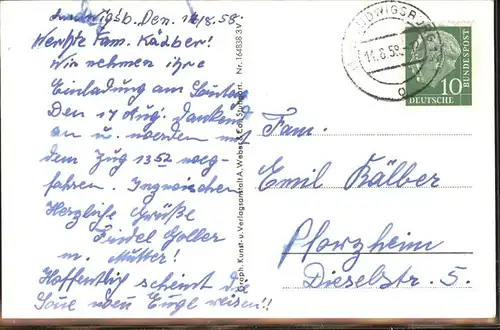 Ludwigsb. Den. 14/8.58.
Werthe Fam. Kälber!
Wir nehmen ihre
Einladung am Sontag
Den 17 Aug. dankend
an u. werden mit
dem Zug 13 52 weg-
fahren. Inzwischen
Herzliche Grüße
Fidel Goller
m. Mutter!
Hoffentlich scheint d
Sone wen Engel reisen!!
Graph. Kunst- u. Verlagsanstalt A. Weber & Co., Stuttgart Nr. 164838 3
LUDWIGSBURG
14.8.58
a
10
DEUTSCHE
BUNDESPOST
Fam.
Emil Kälber
Pforzheim
Dieselstr. 5.